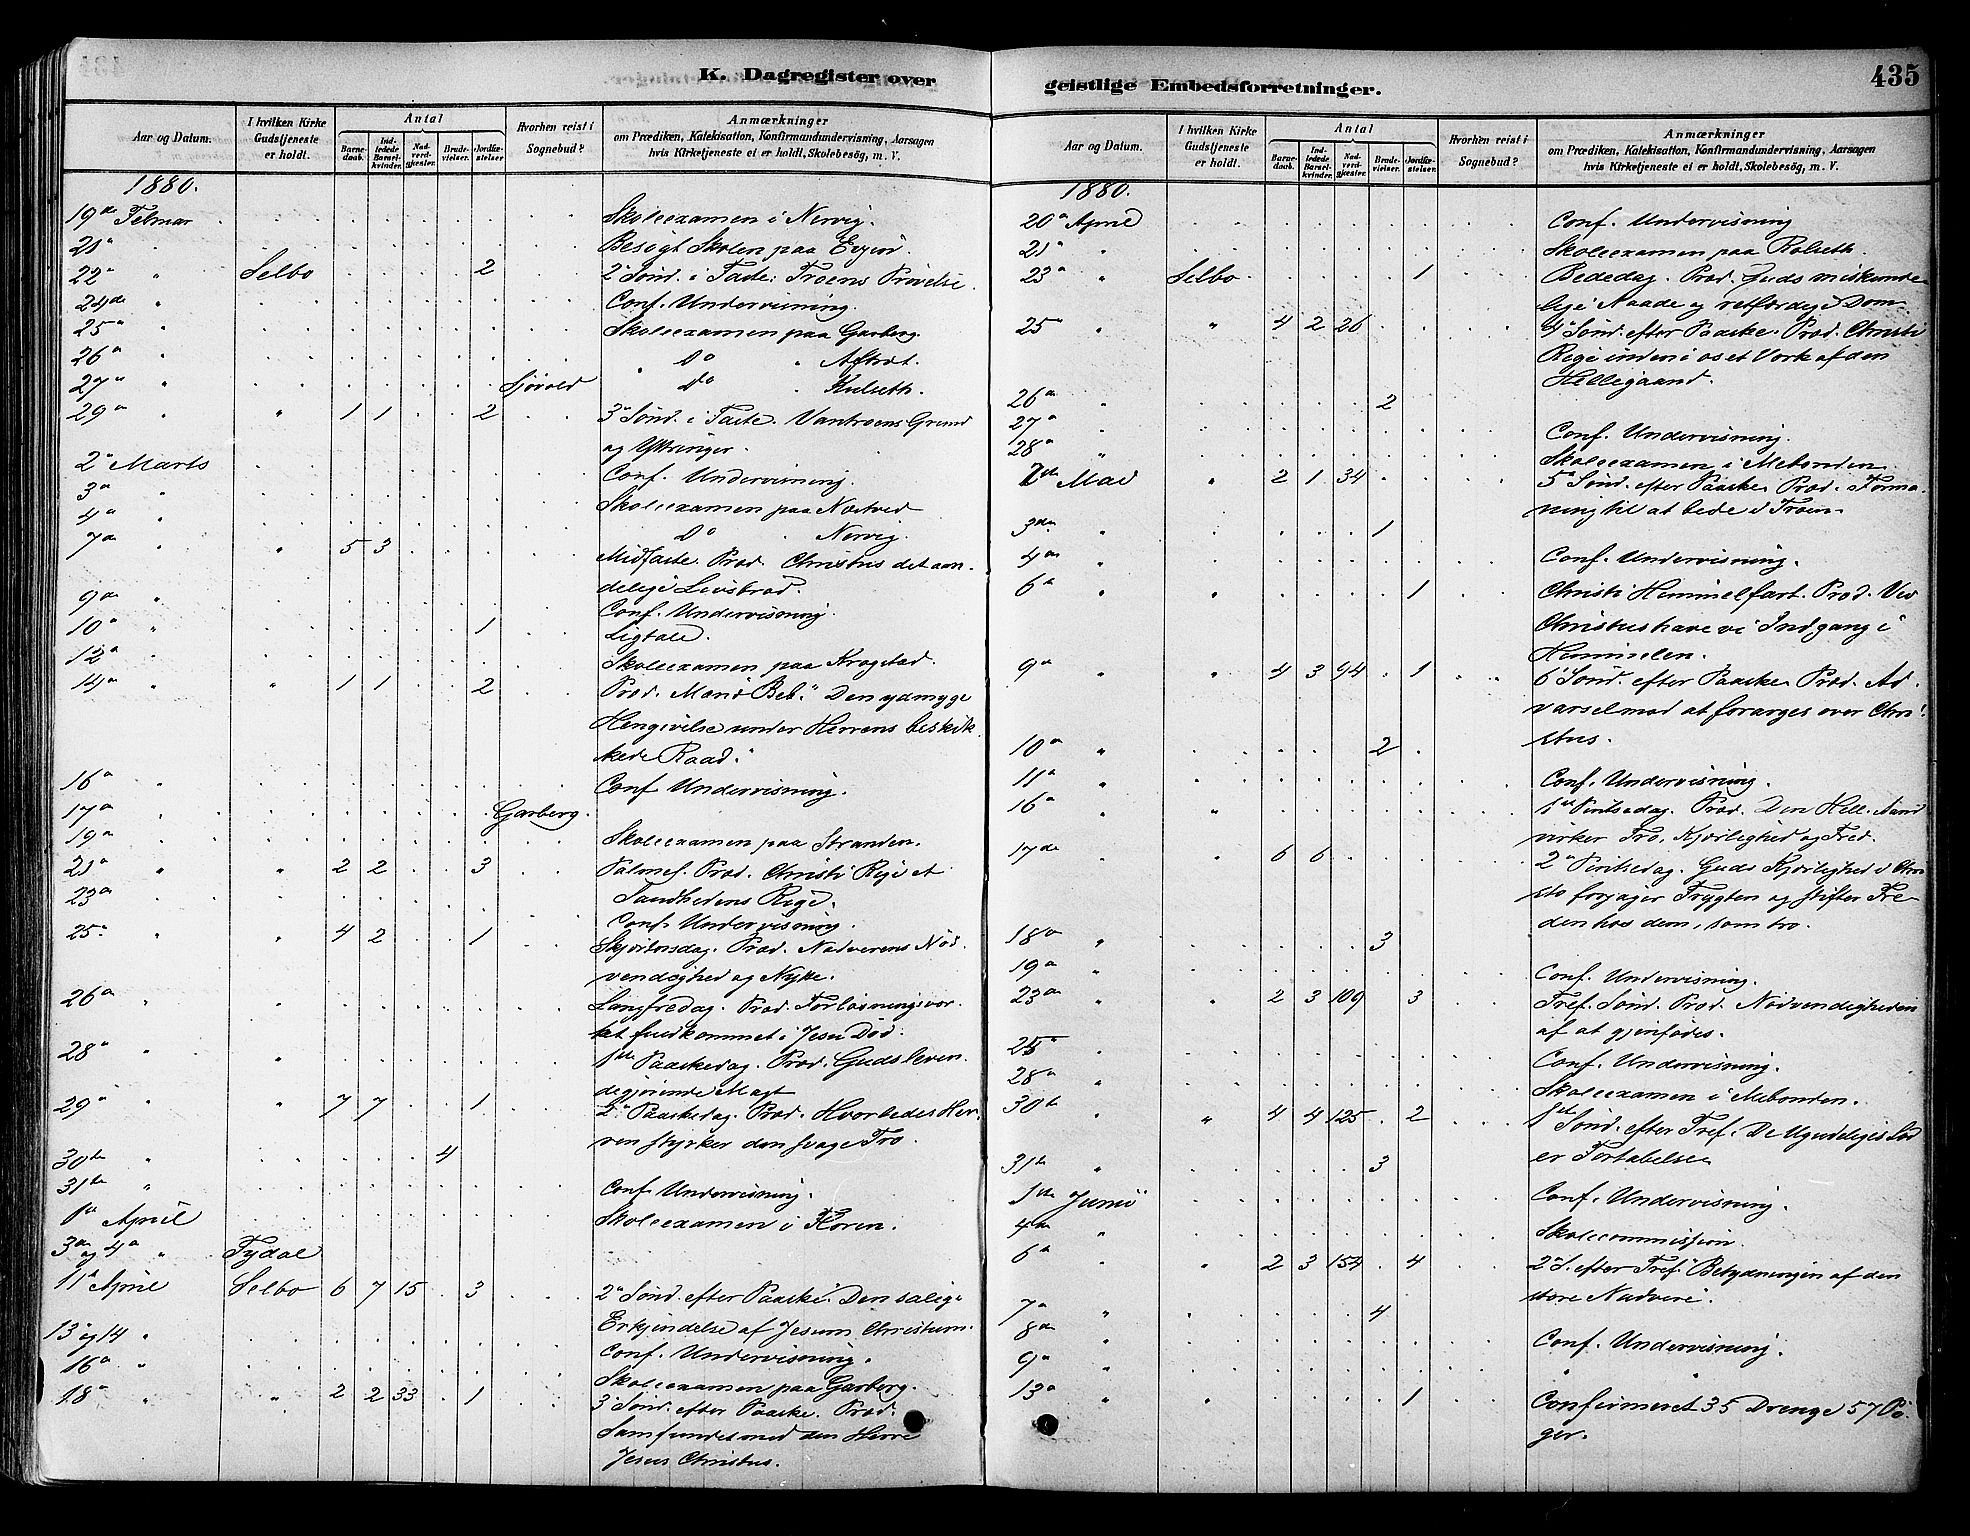 K. Dagregister over
Aar og Datum.
I hvilken Kirke Gudstjeneste er holdt.
Antal
Barnedaab.
Indledede Barselkvinder.
Nadverdgjester.
Brudevielser.
Jordfæstelser.
Hvorhen reist i Sognebud?
Anmærkninger
om Prædiken, Katekisation, Konfirmandundervisning, Aarsagen
hvis Kirketjeneste ei er holdt, Skolebesøg, m. V.
1880.
19de Februar Skoleexamen i Nervig.
21a " Besøgt Skolen paa Evjen.
22a " Selbo 2 2a Sønd. i Faste: Troens Prøvelse.
24de " Conf. Undervisning.
25a " Skoleexamen paa Garberg.
26a " Do " Aftret.
27a " Sjøvold Do " Kulseth.
29a " " 1 1 2 3a Sønd. i Faste. Vantroens Grund
og Yttringer.
2a Marts Conf. Undervisning.
3a " Skoleexamen paa Næsved
4a " Do " Nervig.
7a " " 5 3 Midfaste. Præd. Christus det aan-
delige Livsbrød.
9a " Conf. Undervisning.
10a " 1 Ligtale.
12a " Skoleexamen paa Kragstad.
14a " " 1 1 2 Præd. Mariæ Beb.: Den ydmyge
Hengivelse under Herrens beskik-
kede Raad.
16a " Conf Undervisning.
17a " Garberg.
19a " Skoleexamen paa Stranden.
21a " " 2 2 3 Palmes. Præd. Christi Rige et
Sandhedens Rige.
23a Conf. Undervisning
25a " " 4 2 1 Skjærtorsdag. Præd. Nadverens Nød-
vendighed og Nytte.
26a " Langfredag. Præd. Forløsningsvær-
ket fuldkommet i Jesu Død.
28a " " 1ste Paaskedag. Præd. Guds leven-
degjørende Magt
29a " " 7 7 1 2a Paaskedag. Præd. Hvorledes Her-
ren styrker den svage Tro.
30te " 4
31te " Conf. Undervisning.
1ste April Skoleexamen i Floren.
3a og 4a " Tydal
11a April Selbo 6 7 15 3 2a Sønd. efter Paaske. Den salige
Erkjendelse af Jesum Christum.
13 og 14 " Conf. Undervisning.
16a " Skoleexamen paa Garberg.
18a " " 2 2 33 1 3a Sønd. efter Paaske. Præd.
Samfundet med den Herre
Jesus Christus.
435
geistlige Embedsforretninger.
Aar og Datum.
I hvilken Kirke Gudstjeneste er holdt.
Antal
Barnedaab.
Indledede Barselkvinder.
Nadverdgjester.
Brudevielser.
Jordfæstelser.
Hvorhen reist i Sognebud?
Anmærkninger
om Prædiken, Katekisation, Konfirmandundervisning, Aarsagen
hvis Kirketjeneste ei er holdt, Skolebesøg, m. V.
1880.
20a April Conf. Undervisning
21a " Skoleexamen paa Rolseth.
23a " Selbo 1 Bededag. Præd. Guds miskunde-
lige Naade og retfærdige Dom.
25a " " 4 2 26 4a Sønd. efter Paaske. Præd. Christi
Rige inden i os et Værk af den
Helligaand.
26a " 2
27a " Conf. Undervisning.
28a " Skoleexamen i Mebonden
2den Mai " 2 1 34 5a Sønd. efter Paaske. Præd. Forma-
ning til at bede i Troen.
3die " 1
4a " Conf. Undervisning.
6a " " 1 Christi Himmelfart. Præd. Ved
Christus have vi Indgang i
Himmelen.
9a " " 4 3 94 1 6a Sønd. efter Paaske. Præd. Ad-
varsel mod at forarges over Chri-
stus.
10a " 2
11a " Conf. Undervisning.
16a " " 1ste Pintsedag. Præd. Den Hell. Aand
virker Tro, Kjærlighed og Fred.
17de " " 6 6 2a Pintsedag. Guds Kjærlighed i Chri-
sto forjager Frygten og stifter Fre-
den hos dem, som tro.
18a " 3
19a " Conf. Undervisning.
23a " " 2 3 109 3 Tref. Sønd. Præd. Nødvendigheden
af at gjenfødes.
25a " Conf. Undervisning.
28a " Skoleexamen i Mebonden.
30te " " 4 4 125 2 1ste Sønd. efter Tref. De Ugudeliges Lod
er Fortabelse
31te " 3
1ste Juni Conf. Undervisning.
4a " Skolecommission.
6a " " 2 3 154 4 2a S. efter Tref. Betydningen af den
store Nadvere.
7a " 4
8a " Conf. Undervisning.
9a " "
13a " " 1 Confirmeret 35 Drenge 57 Pi-
ger.